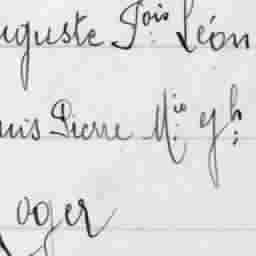 uguste Fois Léon
uis Pierre Mie Jh
oger